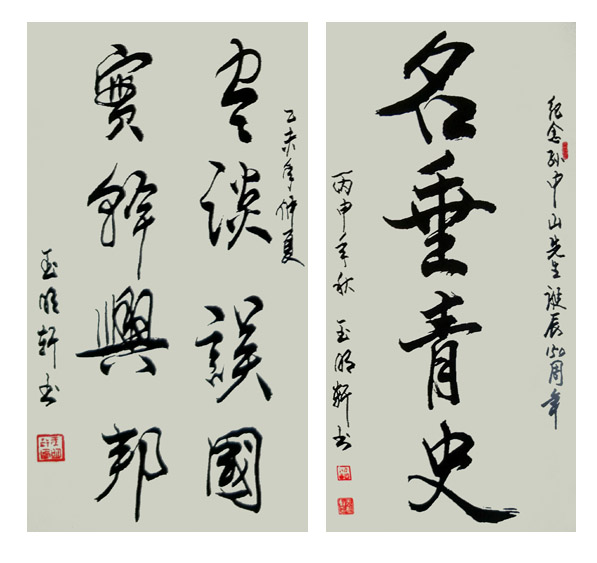 空談誤國
實幹興邦
乙未年仲夏
玉明軒書
紀念孫中山先生誕辰150周年
名垂青史
丙申年秋 玉明軒書